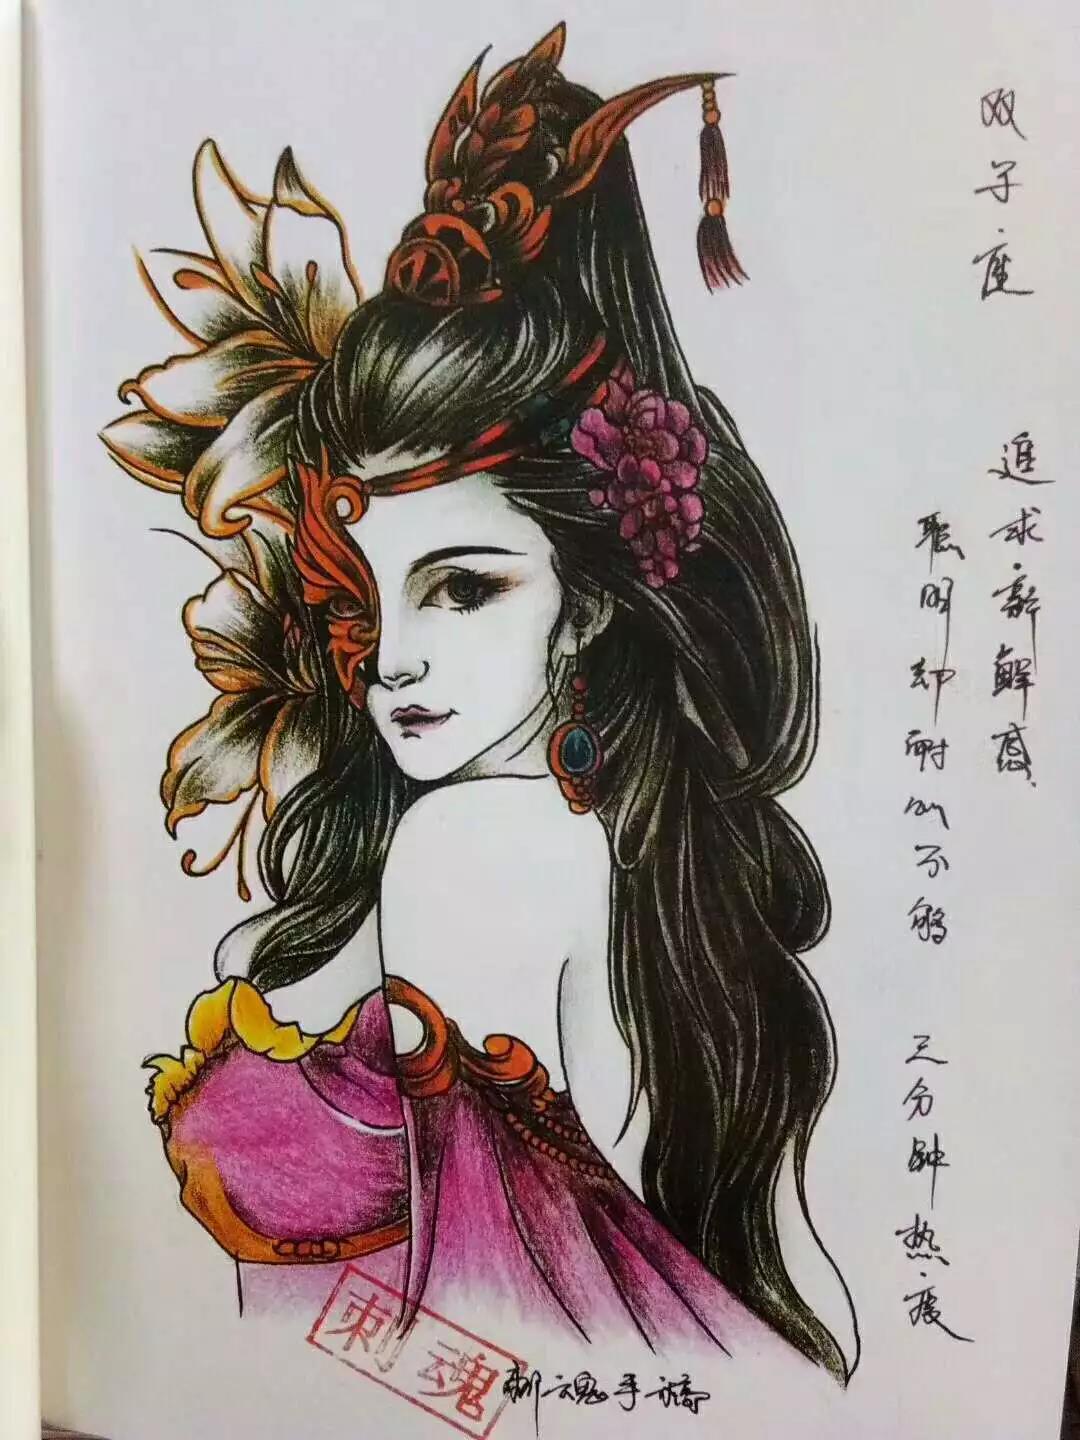 双子座
追求新鲜感
聪明却耐心不够 三分钟热度
刺魂
刺魂手稿